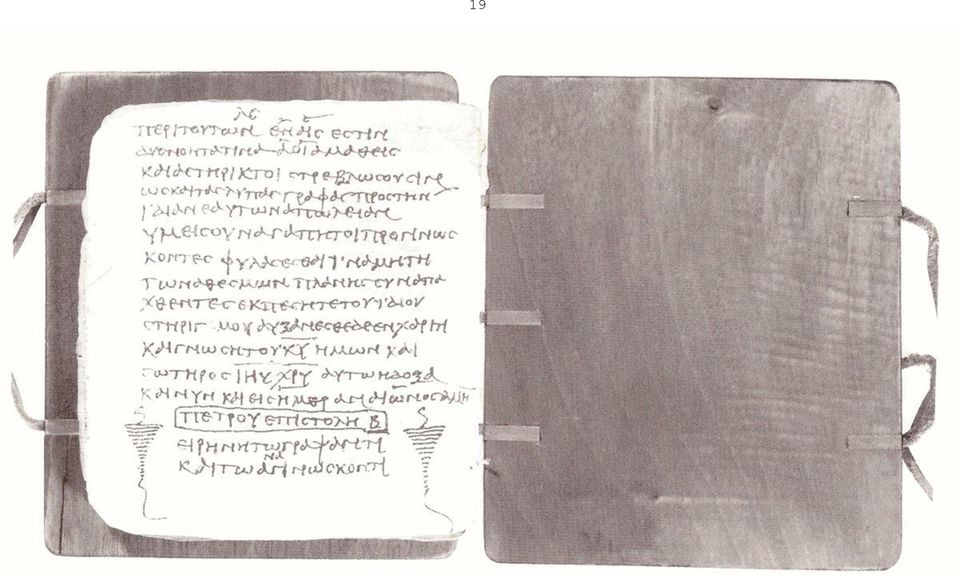 19
λϲ
ΠΕΡΙΤΟΥΤΩΝ ΕΝΑΙϹ ΕϹΤΙΝ
ΔΥϹΝΟΗΤΑΤΙΝΑ ΑΟΙΑΜΑΘΕΙϹ
ΚΑΙΑϹΤΗΡΙΚΤΟΙ ϹΤΡΕΒΛΩϹΟΥϹΙΝ
ΩϹΚΑΙΤΑϹΛΥΠΑϹ ΓΡΑΦΑϹ ΠΡΟϹΤΗΝ
ΙΔΙΑΝΕΑΥΤΩΝΑΠΩΛΕΙΑΝ
ΥΜΕΙϹΟΥΝΑΓΑΠΗΤΟΙΠΡΟΓΙΝΩϹ
ΚΟΝΤΕϹ ΦΥΛΑϹΕϹΘΑΙ ΙΝΑΜΗΤΗ
ΤΩΝΑΘΕϹΜΩΝ ΠΛΑΝΗϹ ϹΥΝΑΠΑ
ΧΘΕΝΤΕϹ ΕΚΠΕϹΗΤΕΤΟΥΙΔΙΟΥ
ϹΤΗΡΙΓΜΟΥ ΑΥΞΑΝΕϹΘΕΔΕΕΝΧΑΡΙΤΙ
ΚΑΙΓΝΩϹΗΤΟΥΚΥ ΗΜΩΝ ΚΑΙ
ϹΩΤΗΡΟϹ ΙΗΥ ΧΡΥ ΑΥΤΩΗΔΟΞΑ
ΚΑΙΝΥΝ ΚΑΙΕΙϹΗΜΕΡΑΝΑΙΩΝΟϹΑΜΗΝ
ΠΕΤΡΟΥΕΠΙϹΤΟΛΗ Β
ΕΙΡΗΝΗΤΩΓΡΑΨΑΝΤΙ
ΚΑΙΤΩΑΝΑΓΙΝΩϹΚΟΝΤΙ